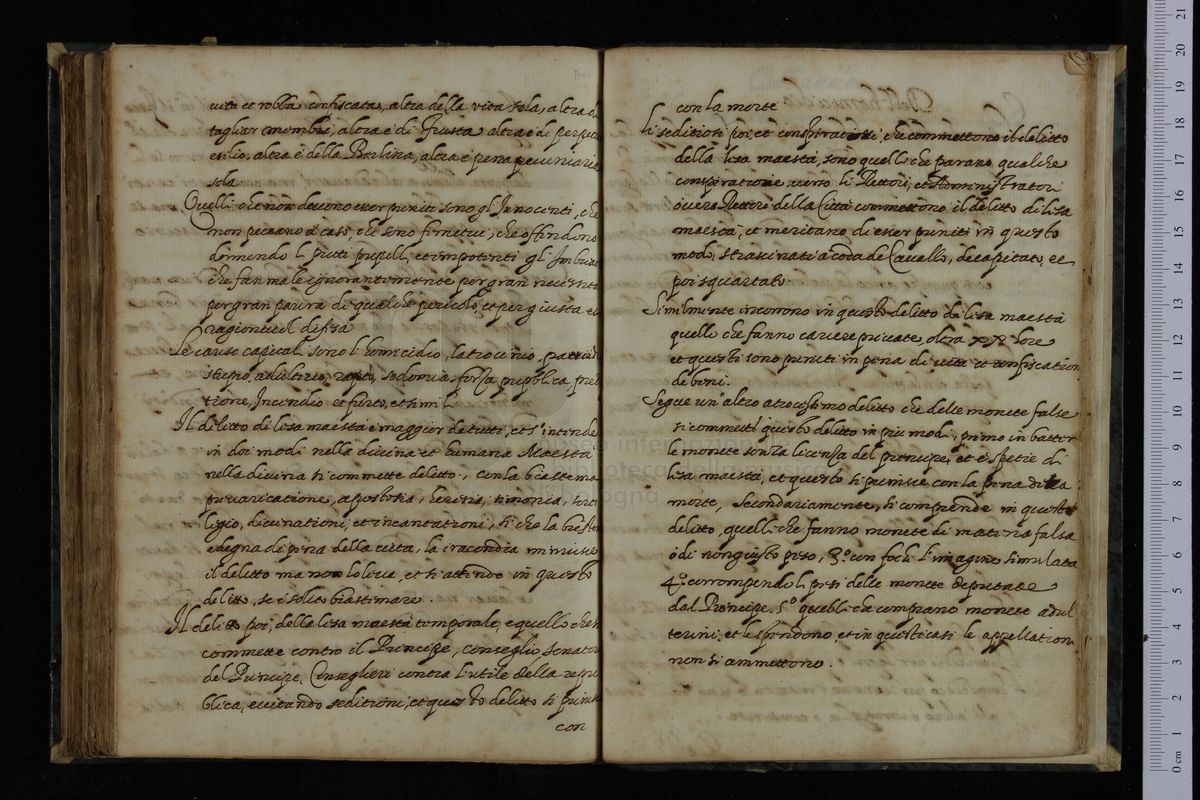 uita et robba confiscata, altra della vita sola, altra di
tagliar membri, altra è di frusta altra è di perpetuo
esilio, altra è della Berlina, altra è pena pecuniaria
sola
Quelli che non deueno esser puniti sono gl'Innocenti, che
non peccano à caso, che sono furiosi, che offendono
dormendo li putti pupilli, et impotenti gl'
che fan male ignorantemente per gran necessità
per gran paura di qualche pericolo, et per giusta et
ragioneuol difesa
Le cause capitali sono l'homicidio, latrocinio,
stupro, adulterio, ratto, sodomia forza pupplica
tione, Incendio et furto, et simili
Il delitto di lesa maestà è maggior de tutti, et s'intende
in doi modi nella diuina et humana Maestà
nella diuina si commette delitto, con la biastema
preuaricatione, apostosia, heresia, simonia, sorti
legio, diuinationi, et incantationi, si che la biastema
è degna di pena della uita, la iracondia minuisce
il delitto ma non lo leua, et si attende in questo
delitto, se è solito biastemare.
Il delitto poi, della lesa maestà temporale, e quello che si
commette contro il Principe, conseglio senator
del Principe, Conseglieri contra l'utile della repu
blica, euitando seditioni, et questo delitto si punisce
con
con la morte
Li seditiosi poi, et conspiratori, che commettono il delitto
della lesa maestà, sono quelli che parano qualche
conspiratione, uerso li Rettori, et Amministratori
ouero Rettori della Città commettono il delitto di lesa
maestà, et meritano di esser puniti in questo
modo, strascinati à coda de Cauallo, decapitati, et
poi squartati.
Similmente incorrono in questo delitto di lesa maestà
quelli che fanno carcere priuate, oltra hore
et questi sono puniti in pena di uita et confiscation
de beni.
Segue un'altro atrocissimo delitto che delle monete false
si commette questo delitto in piu modi, primo in batter
le monete senza licenza del principe, et è spetie di
lesa maestà, et questo si punisce con la pena della
morte, Secondariamente, si comprende in questo
delitto, quelli che fanno monete di materia falsa
ò di non giusto peso, 3.º con l'imagine simulata
4.º corrompendo li pesi delle monete deputate
dal Principe. 5.º quelli che comprano monete adul
terini, et le spendono, et in questi casi le appellation
non si ammettono.
museo internazionale
biblioteca della musica
bologna